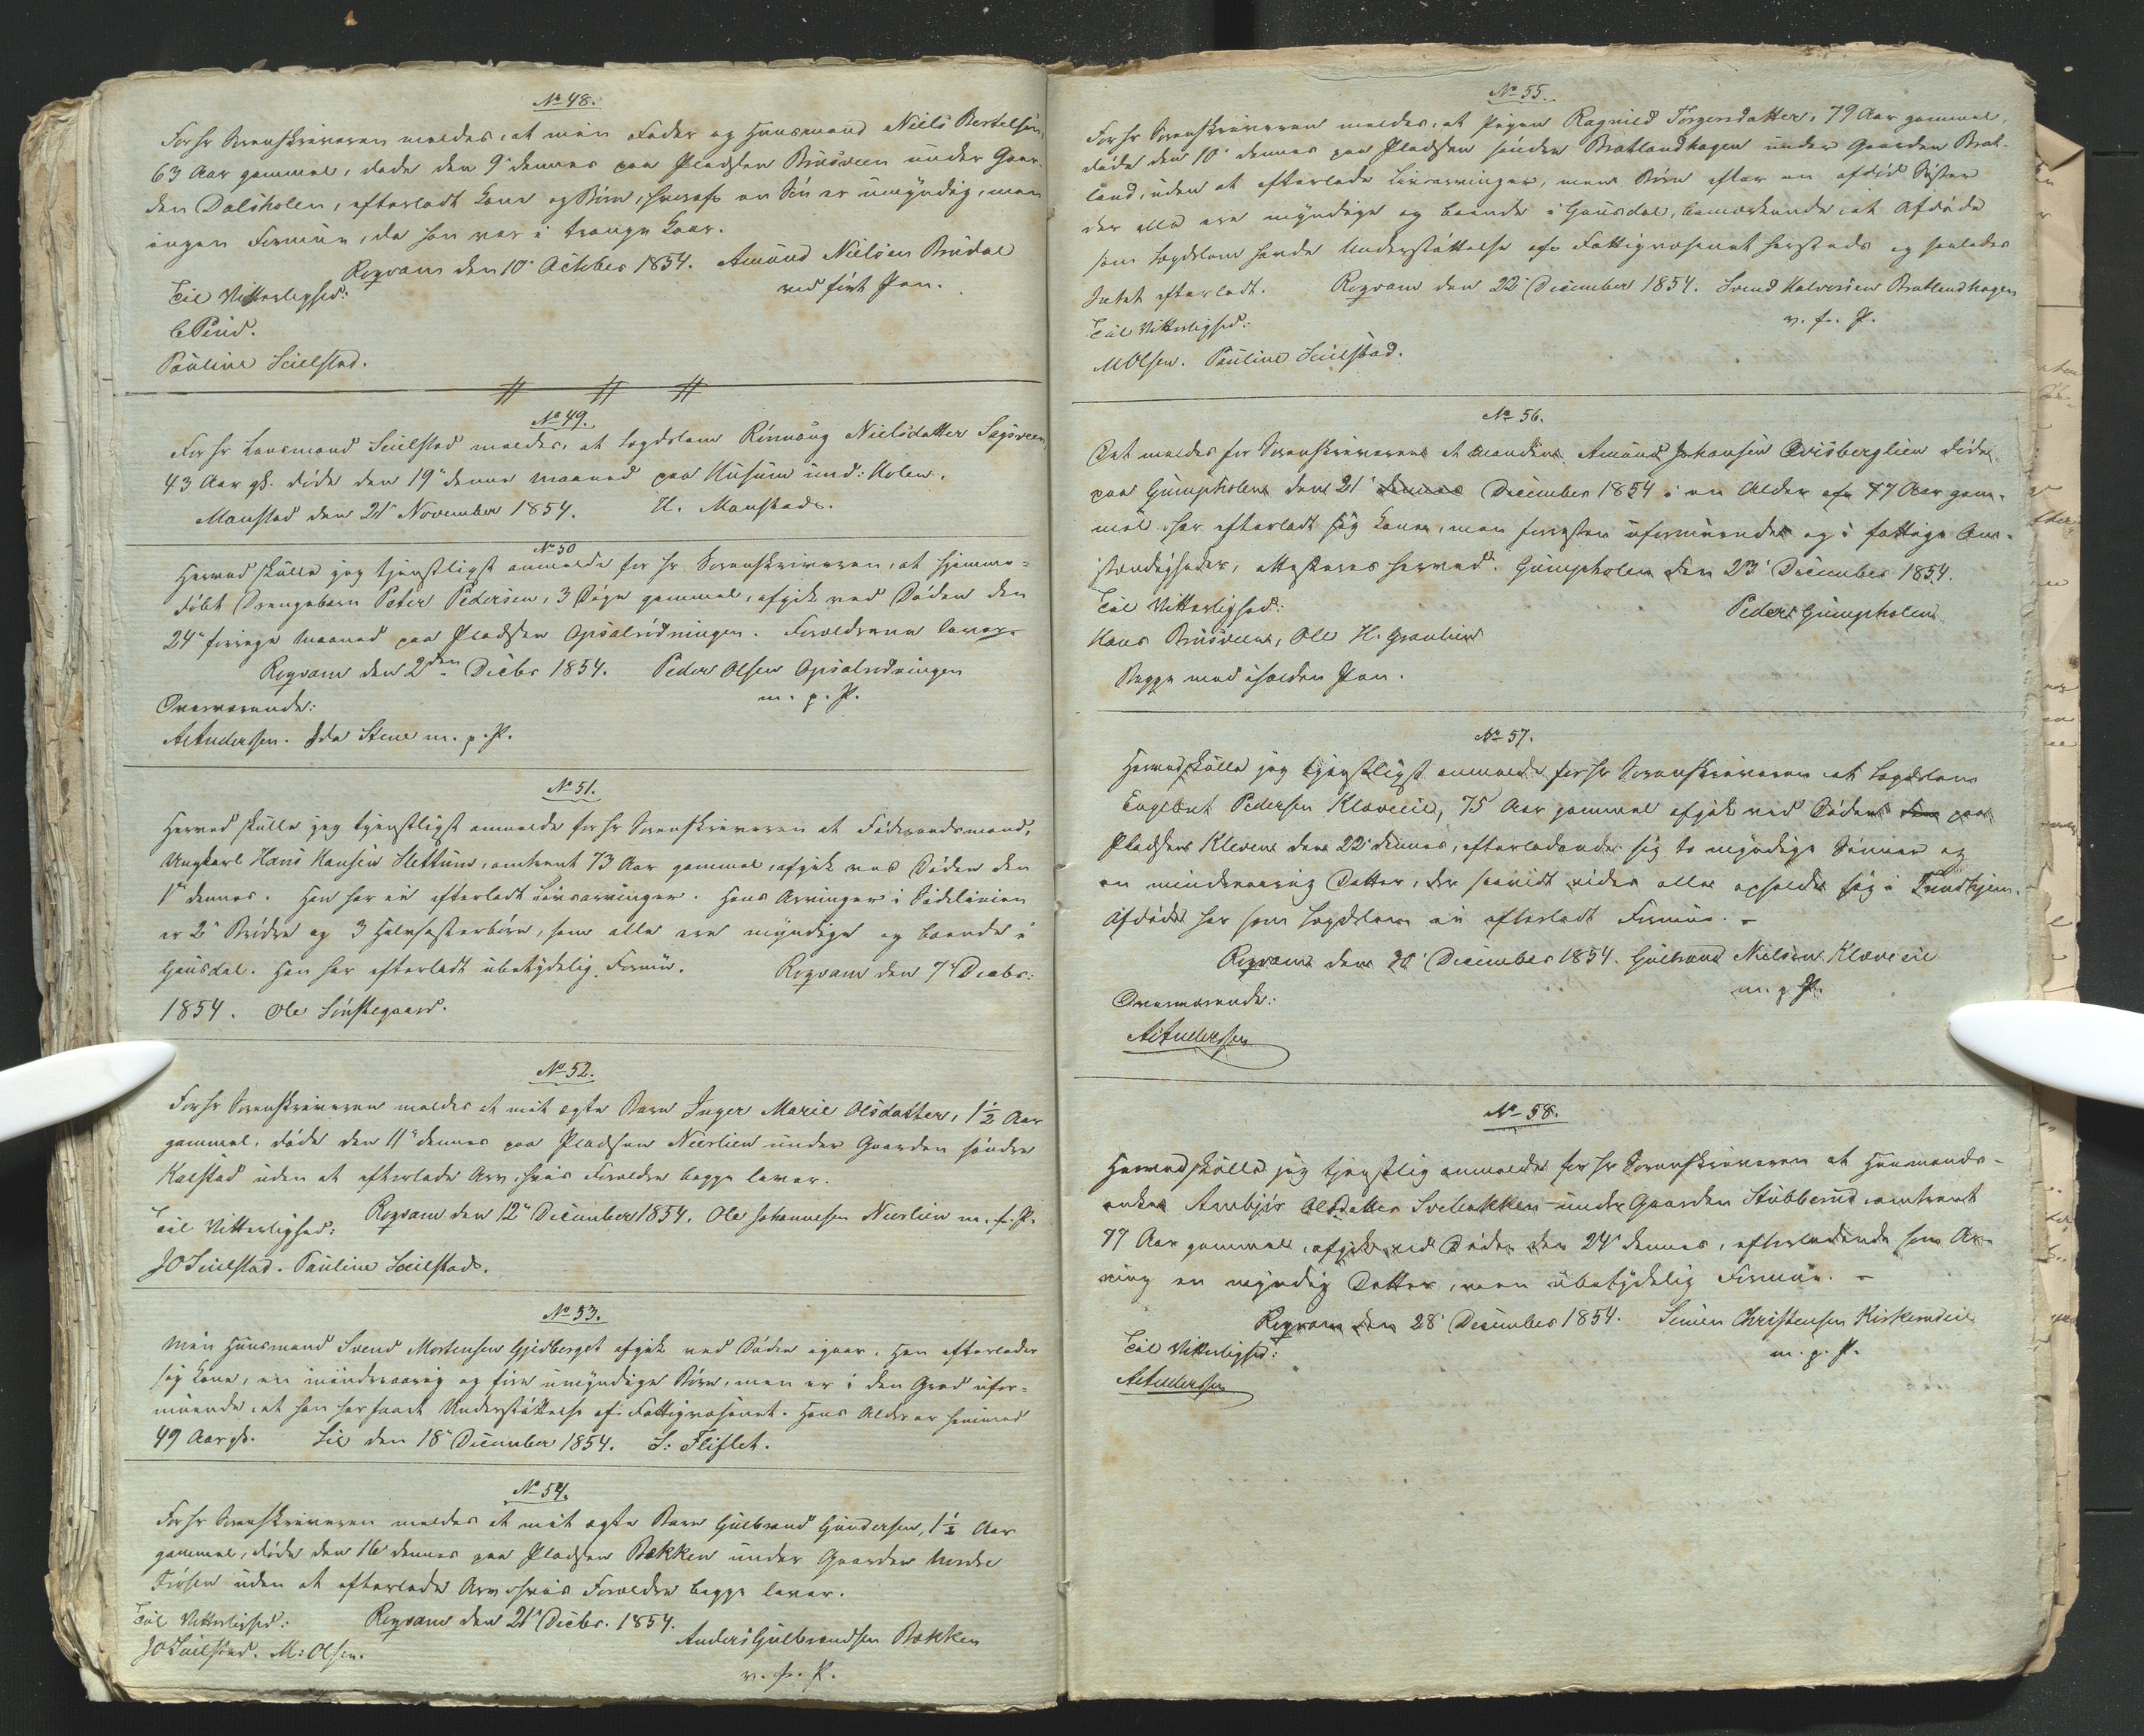 No 48.
For Hr Sorenskriveren meldes, at min Fader og Huusmand Niels Bertelsen,
63 Aar gammel, døde den 9de dennes paa Pladsen Brusveen under Gaar-
den Dalsholen, efterladt Kone og Børn, hvoraf en Søn er umyndig, men
ingen Formue, da han var i trange Kaar.
Rogvam den 10de October 1854. Amund Nielsen Brudal
ved ført Pen.
Til Vitterlighed:
Pauline Seielstad.
No 49.
For Hr Lensmand Seielstad meldes, at Lægdslem Rønnaug Nielsdatter Sagsveen,
43 Aar gl. døde den 19de denne Maaned paa Husum und: Holen.
Manstad den 21de November 1854. H. Manstad.
No 50
Herved skulle jeg tjenstligst anmelde for Hr Sorenskriveren, at hjemme-
døbt Drengebarn Peter Pedersen, 3 Døgn gammel, afgik ved Døden den
24de forrige Maaned paa Pladsen Opsalrydningen. Forældrene lever.
Rogvam den 2den Decbr 1854. Peder Olsen Opsalrydningen
m. p. P.
Overværende:
A. Anderssen. Ida Stene m. p. P.
No 51.
Herved skulle jeg tjenstligst anmelde for Hr Sorenskriveren at Føderaadsmand,
Ungkarl Hans Hansen Slettum, omtrent 73 Aar gammel, afgik ved Døden den
1ste dennes. Han har ei efterladt Livsarvinger. Hans Arvinger i Sidelinien
er 2de Brødre og 3 Halvsøsterbørn, som alle ere myndige og boende i
Gausdal. Han har efterladt ubetydelig Formue. Rogvam den 7de Decbr:
1854. Ole Linstegaard.
No 52.
For Hr Sorenskriveren meldes at mit ægte Barn Inger Marie Olsdatter, 1½ Aar
gammel, døde den 11te dennes paa Pladsen Neerlien under Gaarden søndre
Kalstad uden at efterlade Arv, hvis Forældre begge lever.
Rogvam den 12te December 1854. Ole Johannesen Neerlien m. f. P.
Til Vitterlighed:
JO Seielstad. Pauline Seielstad.
No 53.
Min Huusmand Svend Mortensen Gjedberget afgik ved Døden igaar. Han efterlader
sig Kone, en mindreaarig og fire umyndige Børn, men er i den Grad ufor-
muende, at han har faaet Understøttelse af Fattigvæsenet. Hans Alder er henimod
49 Aar gl. Lie den 18de December 1854. S: Fliflet.
No 54.
For Hr Sorenskriveren meldes at mit ægte Barn Gulbrand Gundersen, 1½ Aar
gammel, døde den 16de dennes paa Pladsen Bækken under Gaarden Nordre
Frøsen uden at efterlade Arv, hvis Forældre begge lever.
Til Vitterlighed: Rogvam den 21de Decbr. 1854.
JO Seielstad. M: Olsen. Anders Gulbrandsen Bækken
v. f. P.
No 55.
For Hr Sorenskriveren meldes, at Pigen Ragnild Torgersdatter, 79 Aar gammel,
døde den 10de dennes paa Pladsen søndre Bratlandhagen under Gaarden Brat-
land, uden at efterlade Livsarvinger, men Børn efter en afdød Søster
der alle ere myndige og boende i Gausdal, bemærkende, at Afdøde
som Lægdslem havde Understøttelse af Fattigvæsenet herstæds og saaledes
Intet efterladt. Rogvam den 22de December 1854. Svend Halvorsen Bratlandhagen
v. f. P.
Til Vitterlighed:
M Olsen. Pauline Seielstad.
No 56.
Det meldes for Sorenskriveren at Manden Amund Johansen Qvisberglien døde
paa Gumpholen den 21de dennes December 1854 i en Alder af 77 Aar gam-
mel, har efterladt sig Kone, men forresten uformuende og i fattige Om-
stændigheder, attesteres herved. Gumpholen den 23de December 1854.
Til Vitterlighed: Peder Gumpholen
Hans Brusveen, Ole H. Granlien
Begge med iholden Pen.
No 57.
Herved skulle jeg tjenstligst anmelde for Hr Sorenskriveren at Lægdslem
Engebret Pedersen Kløveie, 75 Aar gammel afgik ved Døden den paa
Pladsen Kleven den 22de dennes, efterladende sig to myndige Sønner og
en mindreaarig Datter, der saavidt vides alle opholde sig i Trondhjem.
Afdøde har som Lægdslem ei efterladt Formue. –
Rogvam den 30de December 1854. Gulbrand Nielsen Kløveeie
m. p. P.
Overværende:
A. Anderssen
No 58.
Herved skulle jeg tjenstlig anmelde for Hr Sorenskriveren at Huusmands-
enken Anebjør Olsdatter Svebakken under Gaarden Stubberud omtrent
77 Aar gammel, afgik ved Døden den 24de dennes, efterladende som Ar-
ving en myndig Datter, men ubetydelig Formue. –
Rogvam den 28de December 1854. Simen Christensen Kirkerudeie
m. p. P.
Til Vitterlighed:
A. Anderssen